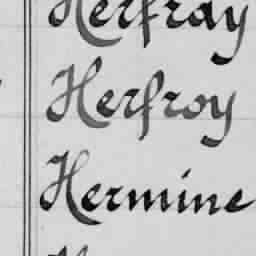 Herfray
Herfroy
Hermine